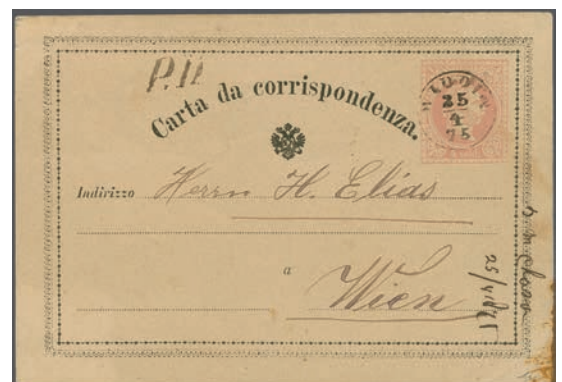 P.D.
Carta da corrispondenza.
25
4
75
Indirizzo Herrn H. Elias
a
Wien
25/4 875